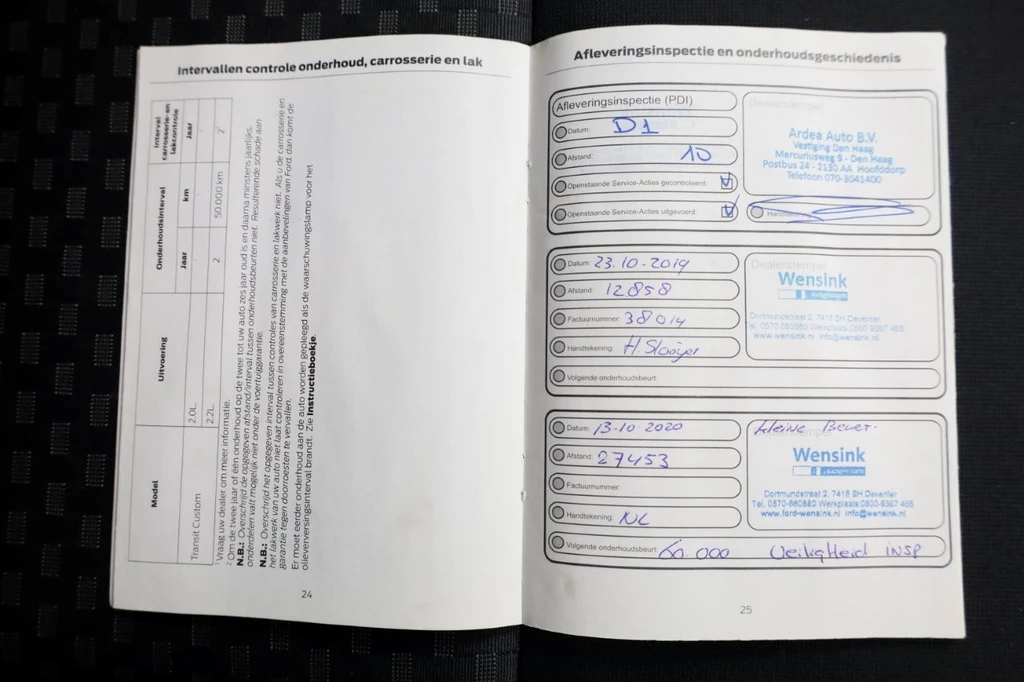 Intervallen controle onderhoud, carrosserie en lak
Model
Uitvoering
Onderhoudsinterval
Interval carrosserie- en lakcontrole
Jaar
km
Jaar
Transit Custom
2.0L
2.2L
2
50.000 km
2
¹ Vraag uw dealer om meer informatie.
² Om de twee jaar of één onderhoud op de twee tot uw auto zes jaar oud is en daarna minstens jaarlijks.
N.B.: Overschrijd de opgegeven afstand/interval tussen onderhoudsbeurten niet. Resulterende schade aan
onderdelen valt mogelijk niet onder de voertuiggarantie.
N.B.: Overschrijd het opgegeven interval tussen controles van carrosserie en lakwerk niet. Als u de carrosserie en
het lakwerk van uw auto niet laat controleren in overeenstemming met de aanbevelingen van Ford, dan komt de
garantie tegen doorroesten te vervallen.
Er moet eerder onderhoud aan de auto worden gepleegd als de waarschuwingslamp voor het
olieverversingsinterval brandt. Zie Instructieboekje.
24
Afleveringsinspectie en onderhoudsgeschiedenis
Afleveringsinspectie (PDI)
Datum: D1
Afstand: 10
Openstaande Service-Acties gecontroleerd:
Openstaande Service-Acties uitgevoerd:
Dealerstempel
Ardea Auto B.V.
Vestiging Den Haag
Mercuriusweg 9 - Den Haag
Postbus 24 - 2130 AA Hoofddorp
Telefoon 070-3041400
Datum: 23-10-2019
Afstand: 12858
Factuurnummer: 38014
Handtekening:
Volgende onderhoudsbeurt:
Dealerstempel
Wensink
Dortmundstraat 2, 7418 BH Deventer
Tel. 0570-660660 Werkplaats 0800-9367 465
www.wensink.nl info@wensink.nl
Datum: 13-10-2020
Afstand: 27453
Factuurnummer:
Handtekening: NL
Volgende onderhoudsbeurt: 60.000 Veiligheid insp
Kleine Beurt
Wensink
Dortmundstraat 2, 7418 BH Deventer
Tel. 0570-660660 Werkplaats 0800-9367 465
www.ford-wensink.nl info@wensink.nl
25